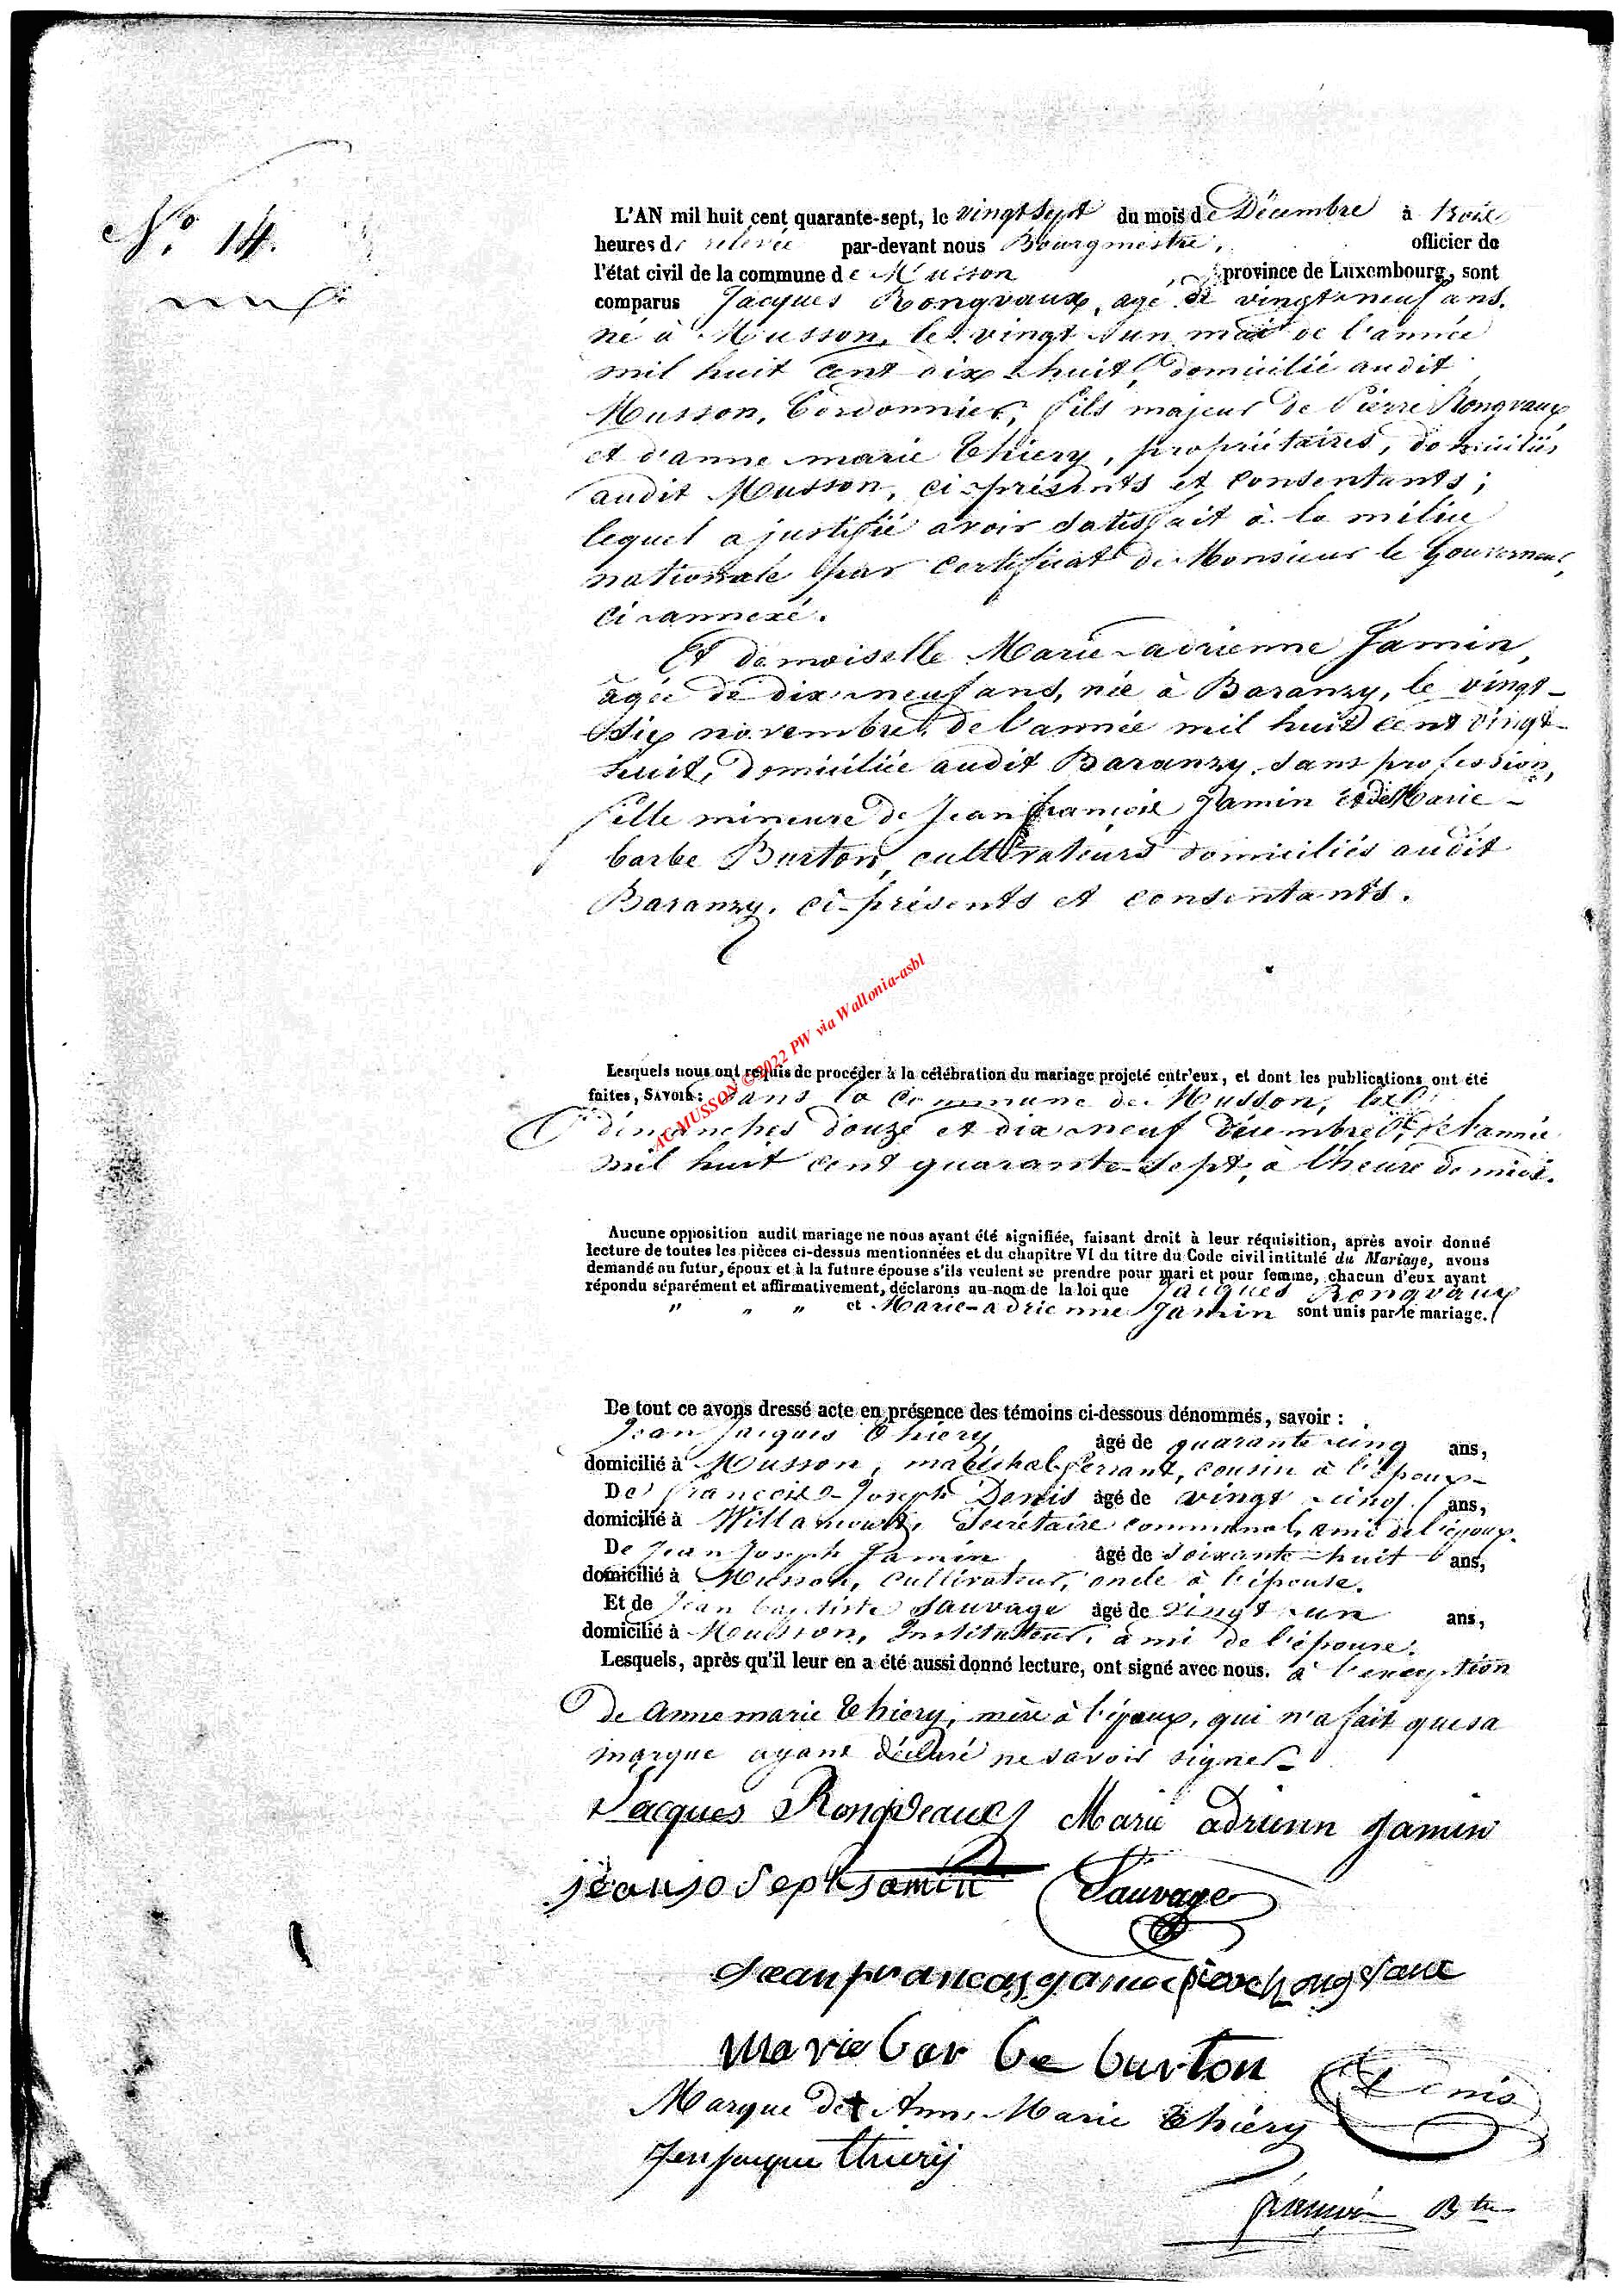 N.o 14.
L'AN mil huit cent quarante-sept, le vingt sept du mois de Décembre à trois
heures de relevée par-devant nous Bourgmestre, officier de
l'état civil de la commune de Musson, province de Luxembourg, sont
comparus Jacques Rongvaux, agé de vingt-neuf ans.
né à Musson, le vingt un mai de l'année
mil huit cent dix-huit, domicilié audit
Musson, Cordonnier, fils majeur de Pierre Rongvaux
et d'anne marie Thiery, propriétaires, domiciliés
audit Musson, ci-présents et consentants;
lequel a justifié avoir satisfait à la milice
nationale par certificat de Monsieur le Gouverneur,
ci-annexé.
Et demoiselle Marie-adrienne Jamin,
âgée de dix-neuf ans, née à Baranzy, le vingt-
six novembre de l'année mil huit cent vingt-
huit, domiciliée audit Baranzy, sans profession,
fille mineure de Jean françois Jamin et de Marie-
barbe Burton, cultivateurs domiciliés audit
Baranzy, ci-présents et consentants.
AC MUSSON ©2022 PW via Wallonia-asbl
Lesquels nous ont requis de procéder à la célébration du mariage projeté entr'eux, et dont les publications ont été
faites, SAVOIR: dans la commune de Musson, les
dimanches douze et dix-neuf Décembre de l'année
mil huit cent quarante-sept, à l'heure de midi.
Aucune opposition audit mariage ne nous ayant été signifiée, faisant droit à leur réquisition, après avoir donné
lecture de toutes les pièces ci-dessus mentionnées et du chapitre VI du titre du Code civil intitulé du Mariage, avons
demandé au futur, époux et à la future épouse s'ils veulent se prendre pour mari et pour femme, chacun d'eux ayant
répondu séparément et affirmativement, déclarons au nom de la loi que Jacques Rongvaux
" " " et Marie-adrienne Jamin sont unis par le mariage.
De tout ce avons dressé acte en présence des témoins ci-dessous dénommés, savoir :
Jean Jacques Thiéry âgé de quarante-cinq ans,
domicilié à Musson, maréchal-ferrant, cousin à l'époux-
De françois-Joseph Denis âgé de vingt-cinq ans,
domicilié à Willancourt, Secrétaire communal, ami de l'époux.
De Jean Joseph Jamin, âgé de soixante-huit ans,
domicilié à Musson, cultivateur, oncle à l'épouse.
Et de Jean baptiste Sauvage âgé de vingt-un ans,
domicilié à Musson, Instituteur, ami de l'épouse.
Lesquels, après qu'il leur en a été aussi donné lecture, ont signé avec nous. à l'exception
de Anne marie Thiery, mère à l'époux, qui n'a fait que sa
marque ayant déclaré ne savoir signer-
Jacques Rongveaux Marie adrienn Jamin
jean josept jamin Sauvage
Jean francois jamin pierre Rongvaux
marie bar be burton
Denis
Marque de + Anne Marie Thiéry
Jen jacque thiery
Btre